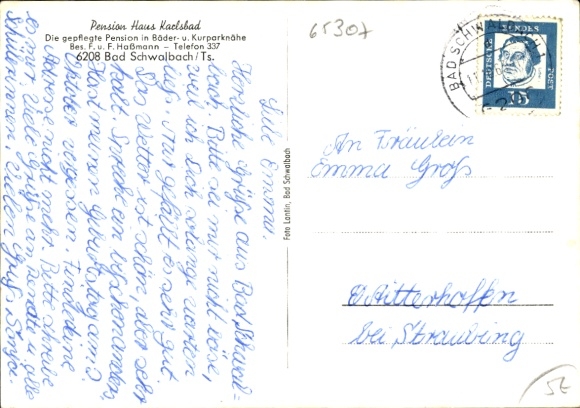 Pension Haus Karlsbad
Die gepflegte Pension in Bäder- u. Kurparknähe
Bes. F. u. F. Haßmann – Telefon 337
6208 Bad Schwalbach/Ts.
65307
BAD SCHWALBACH 1
DEUTSCHE BUNDESPOST
15
Liebe Emma.
Herzliche Grüße aus Bad Schwal-
bach. Bitte sei mir nicht böse,
weil ich Dich solange warten
ließ. Mir gefällt es sehr gut
Das Wetter ist schön, aber sehr
kalt.
Hast meinen Geburtstag am 2.
vergessen.
nicht mehr. Bitte schreibe
Viele Grüße an u. alle
Vielen Gruß,
Foto Lantin, Bad Schwalbach
An Fräulein
Emma Groß
Aitterhofen
bei Straubing
5E